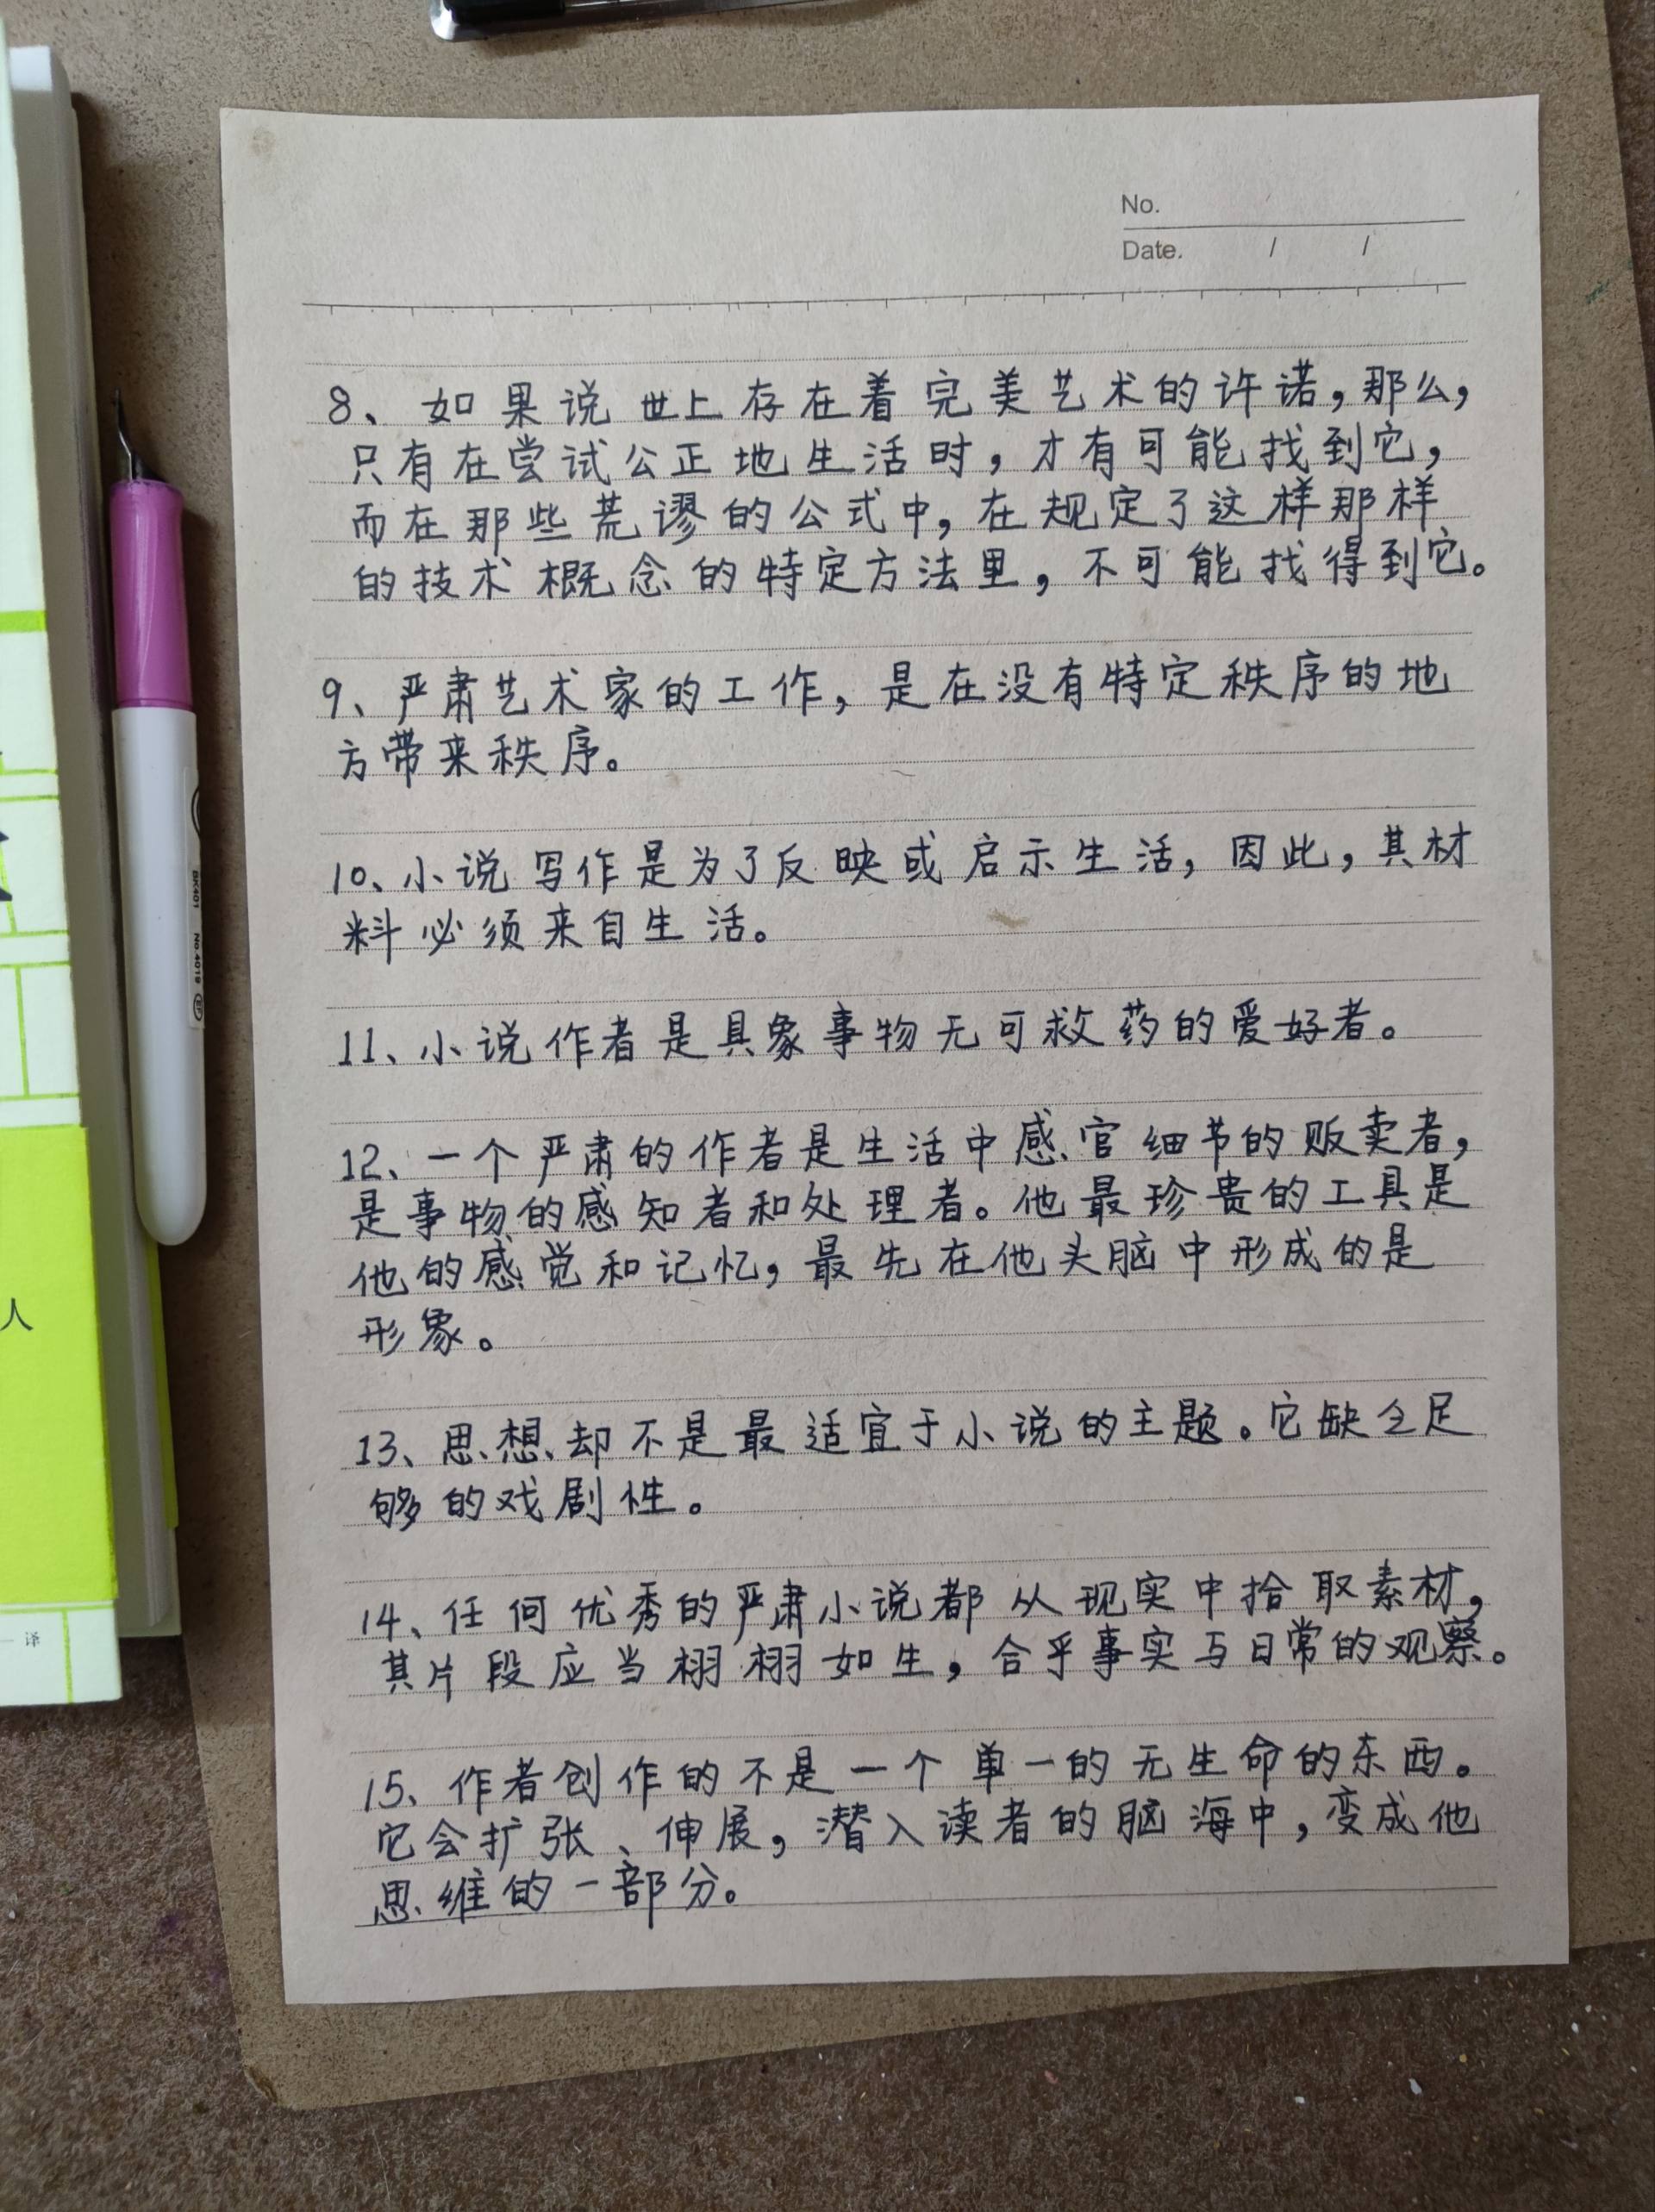 No.
Date. / /
8、如果说世上存在着完美艺术的许诺，那么，
只有在尝试公正地生活时，才有可能找到它，
而在那些荒谬的公式中，在规定了这样那样
的技术概念的特定方法里，不可能找得到它。
9、严肃艺术家的工作，是在没有特定秩序的地
方带来秩序。
10、小说写作是为了反映或启示生活，因此，其材
料必须来自生活。
11、小说作者是具象事物无可救药的爱好者。
12、一个严肃的作者是生活中感官细节的贩卖者，
是事物的感知者和处理者。他最珍贵的工具是
他的感觉和记忆，最先在他头脑中形成的是
形象。
13、思想却不是最适宜于小说的主题。它缺乏足
够的戏剧性。
14、任何优秀的严肃小说都从现实中拾取素材，
其片段应当栩栩如生，合乎事实与日常的观察。
15、作者创作的不是一个单一的无生命的东西。
它会扩张、伸展，潜入读者的脑海中，变成他
思维的一部分。
人
译
BK401 No.4019